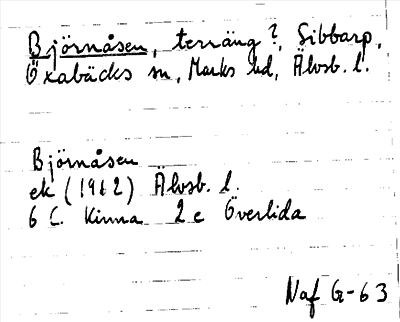 Björnåsen, terräng?, Sibbarp,
Öxabäcks sn, Marks hd, Älvsb. l.
Björnåsen
ek (1962) Älvsb. l.
6 C. Kinna 2 e Överlida
Naf G-63